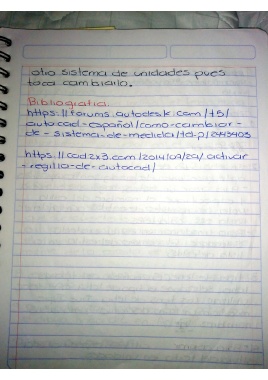 otro sistema de unidades pues
toca cambiarlo.
Bibliografia:
https://forums.autodesk.com/t5/
autocad-español/como-cambiar-
de-sistema-de-medida/td-p/
https://cad2x3.com/2014/09/29/activar
-regilla-de-autocad/